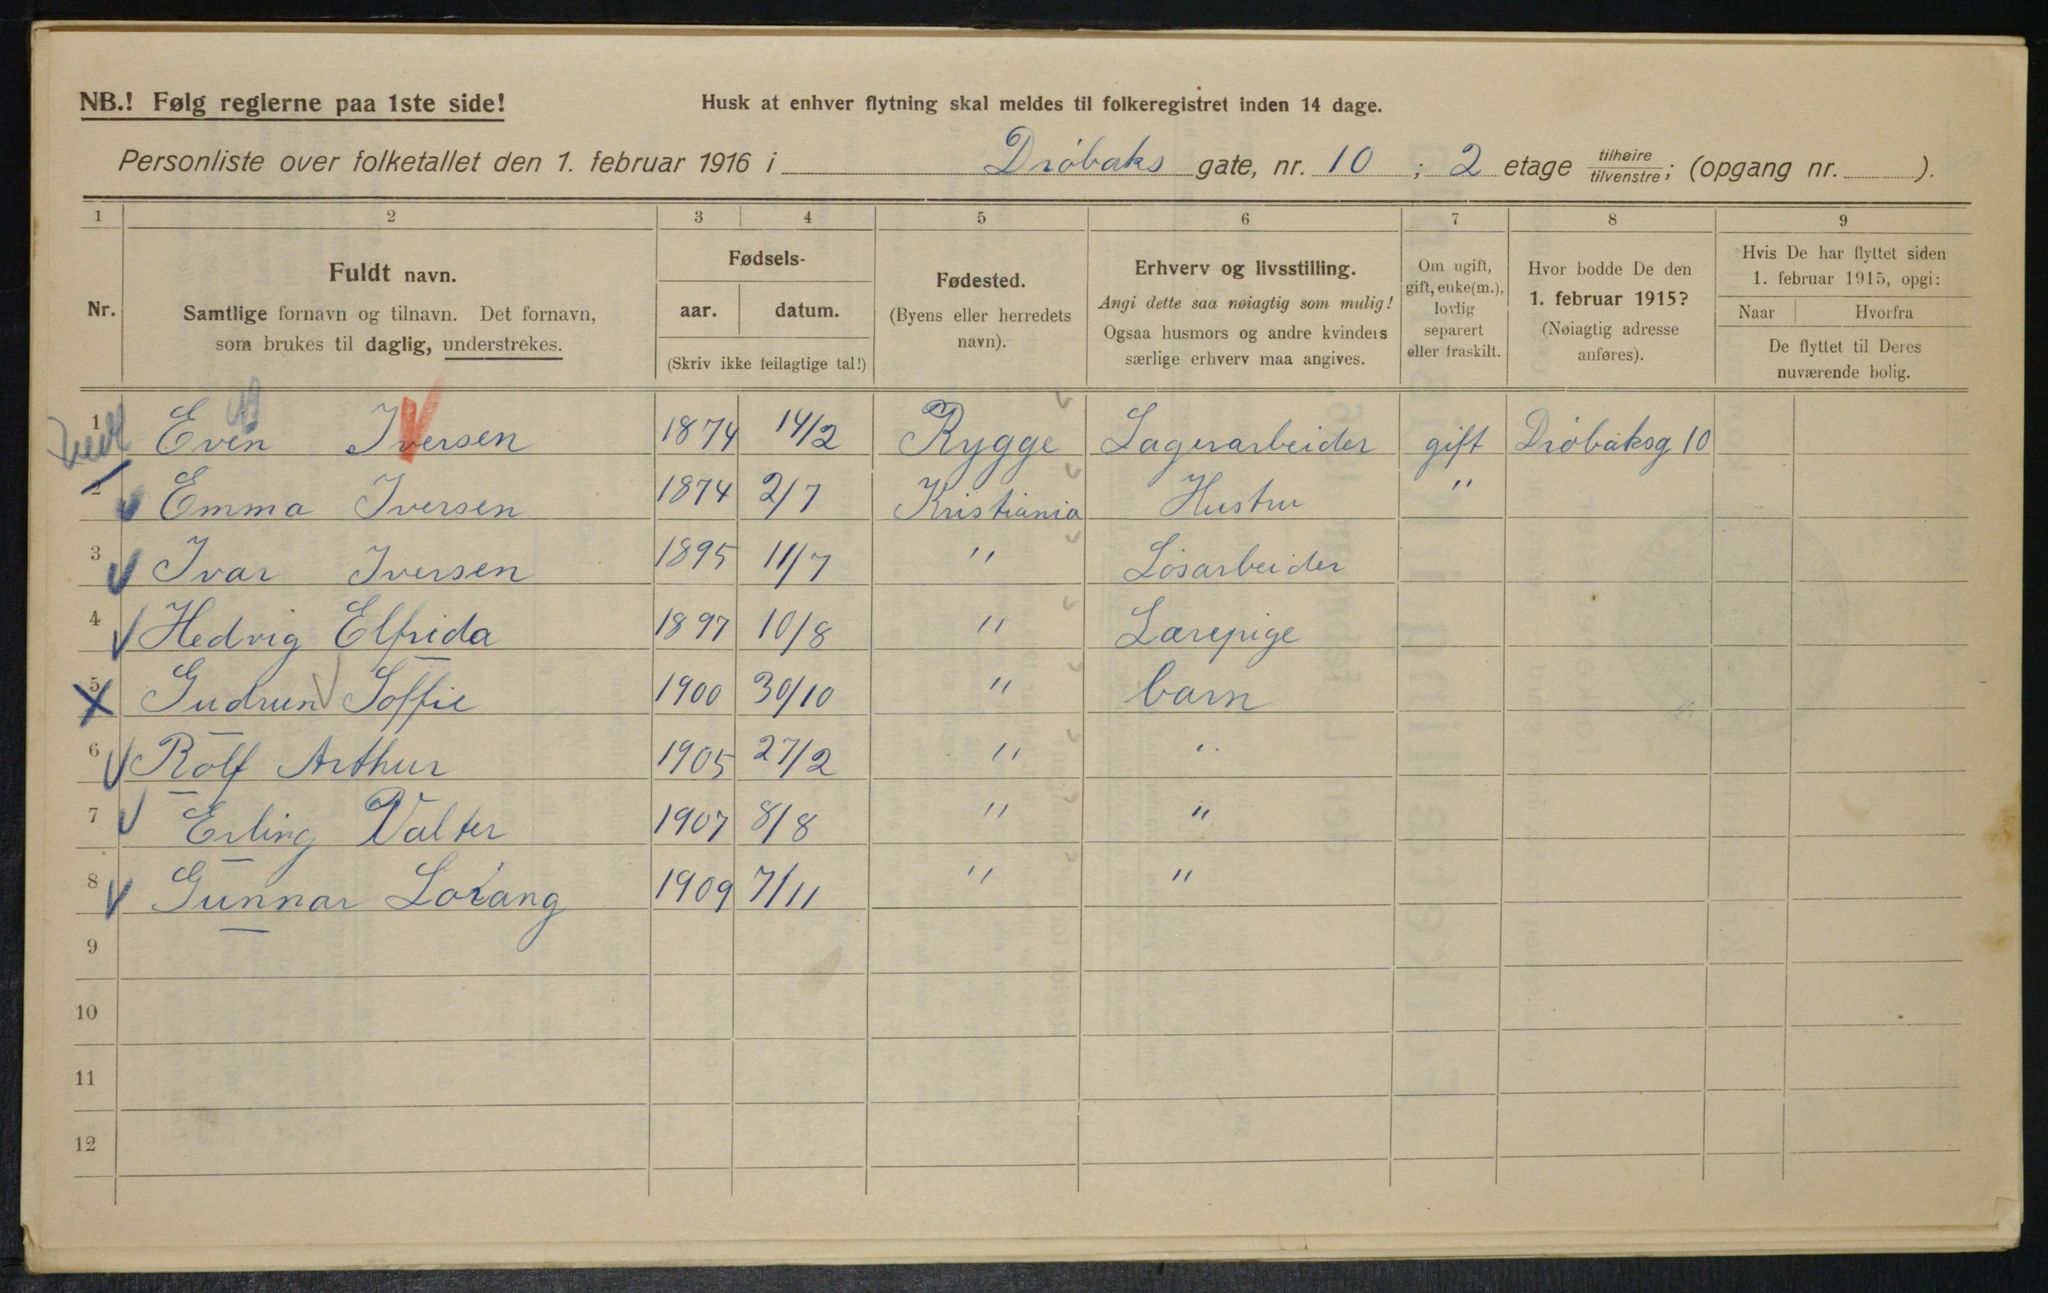 NB.! Følg reglerne paa 1ste side!
Husk at enhver flytning skal meldes til folkeregistret inden 14 dage.
Personliste over folketallet den 1. februar 1916 i Drøbaks gate, nr. 10 ; 2 etage tilhøire tilvenstre; (opgang nr. ).
1 2 3 4 5 6 7 8 9
Nr.
Fuldt navn.
Samtlige fornavn og tilnavn. Det fornavn,
som brukes til daglig, understrekes.
Fødsels-
aar. datum.
(Skriv ikke feilagtige tal!)
Fødested.
(Byens eller herredets
navn).
Erhverv og livsstilling.
Angi dette saa nøiagtig som mulig!
Ogsaa husmors og andre kvinders
særlige erhverv maa angives.
Om ugift,
gift, enke(m.),
lovlig
separert
eller fraskilt.
Hvor bodde De den
1. februar 1915?
(Nøiagtig adresse
anføres).
Hvis De har flyttet siden
1. februar 1915, opgi:
Naar Hvorfra
De flyttet til Deres
nuværende bolig.
1 Even Iversen 1874 14/2 Rygge Lagerarbeider gift Drøbaksg 10
2 Emma Iversen 1874 2/7 Kristiania Hustru "
3 Ivar Iversen 1895 11/7 " Løsarbeider
4 Hedvig Elfrida 1897 10/8 " Lærepige
5 Gudrun Soffie 1900 30/10 " barn
6 Rolf Arthur 1905 27/2 " "
7 Erling Valter 1907 8/8 " "
8 Gunnar Lorang 1909 7/11 " "
9
10
11
12